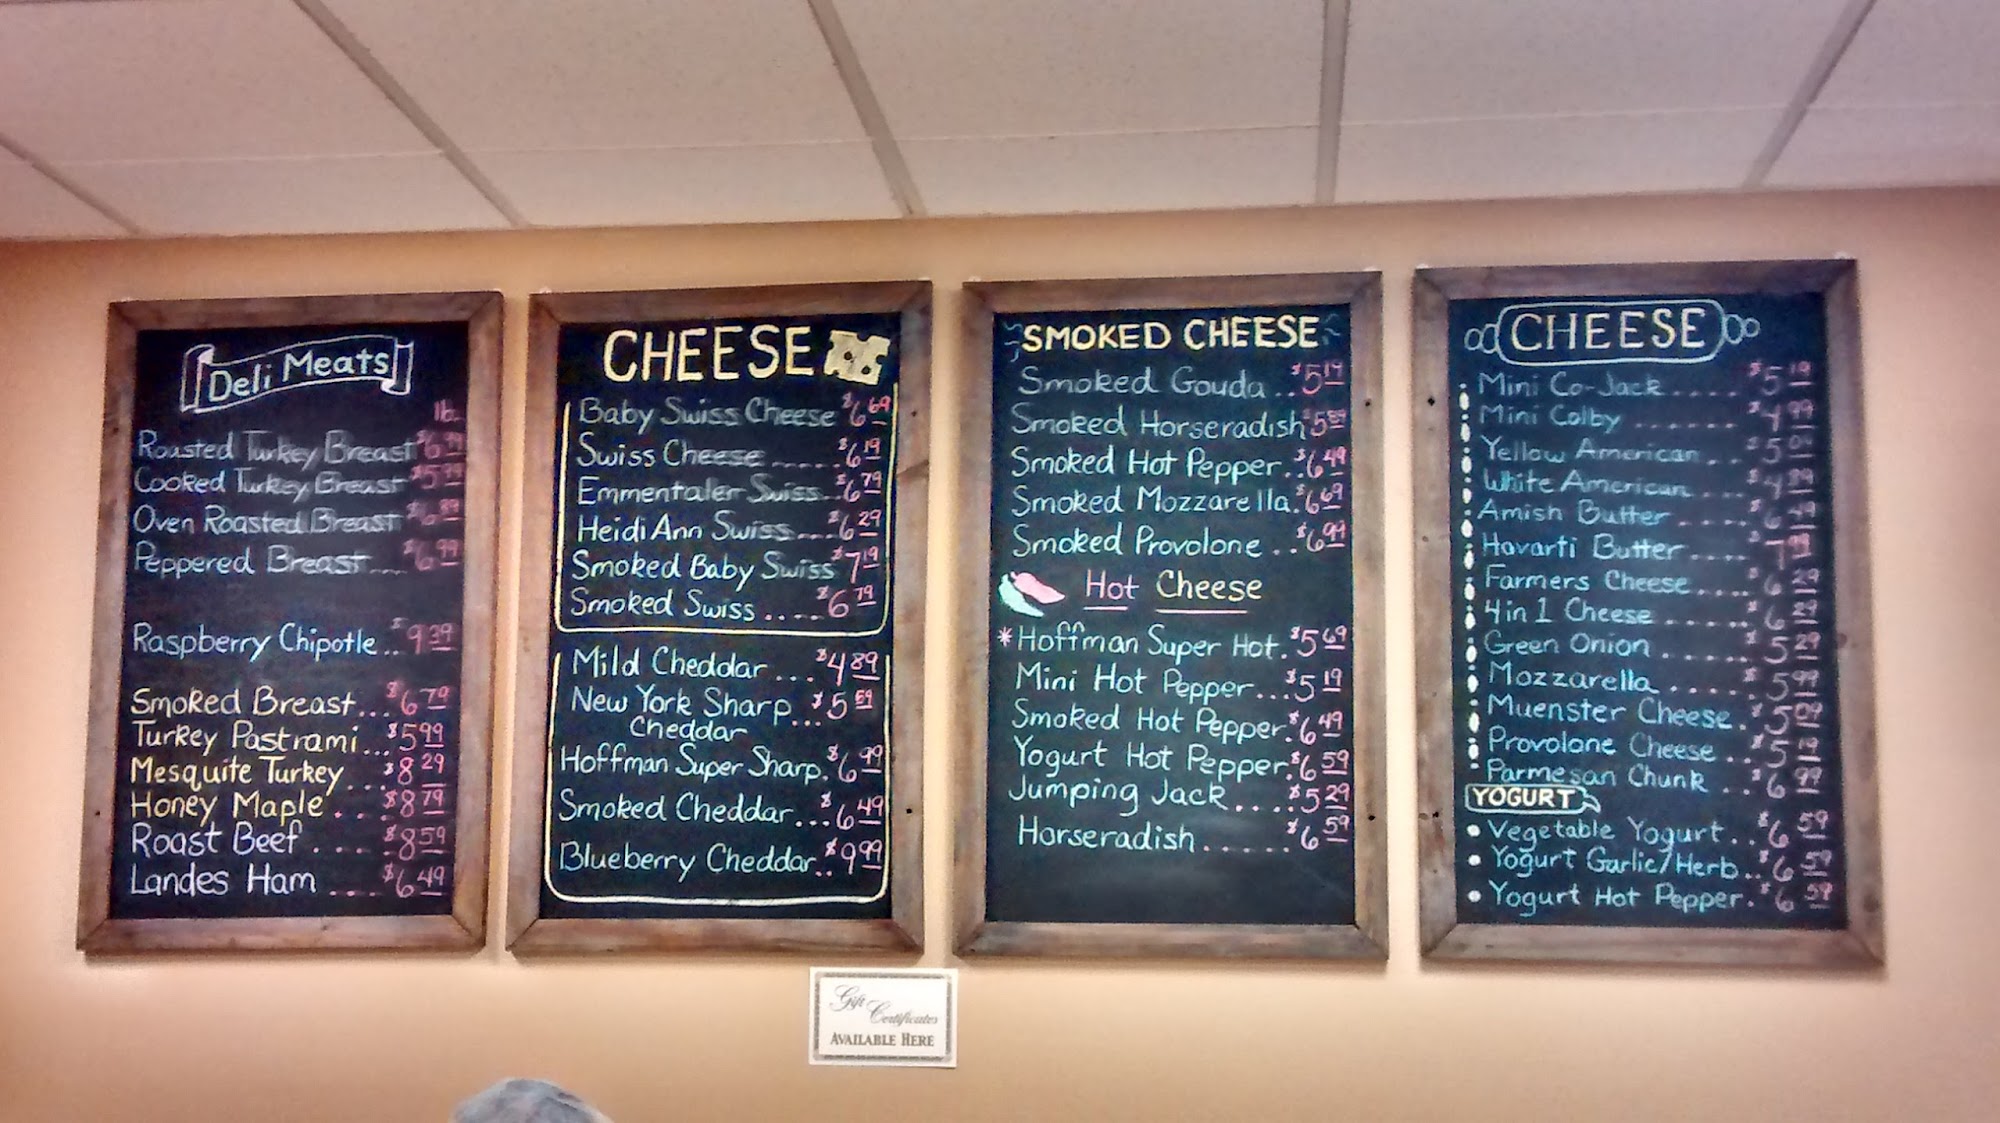 Deli Meats
lb.
Roasted Turkey Breast
Cooked Turkey Breast $5.99
Oven Roasted Breast
Peppered Breast.... $6.99
Raspberry Chipotle.. $9.39
Smoked Breast... $6.79
Turkey Pastrami... $5.99
Mesquite Turkey... $8.29
Honey Maple.... $8.79
Roast Beef..... $8.59
Landes Ham.... $6.49
CHEESE
Baby Swiss Cheese $6.69
Swiss Cheese..... $6.19
Emmentaler Swiss.. $6.79
Heidi Ann Swiss... $6.29
Smoked Baby Swiss $7.19
Smoked Swiss.... $6.79
Mild Cheddar... $4.89
New York Sharp
Cheddar... $5.59
Hoffman Super Sharp. $6.99
Smoked Cheddar... $6.49
Blueberry Cheddar.. $9.99
SMOKED CHEESE
Smoked Gouda.. $5.19
Smoked Horseradish $5.89
Smoked Hot Pepper.. $6.49
Smoked Mozzarella. $6.69
Smoked Provolone.. $6.99
Hot Cheese
*Hoffman Super Hot. $5.69
Mini Hot Pepper... $5.19
Smoked Hot Pepper. $6.49
Yogurt Hot Pepper. $6.59
Jumping Jack.... $5.29
Horseradish...... $6.59
CHEESE
Mini Co-Jack..... $5.19
Mini Colby....... $4.99
Yellow American... $5.09
White American....
Amish Butter..... $6.49
Havarti Butter.... $7.99
Farmers Cheese.... $6.29
4 in 1 Cheese...... $6.29
Green Onion...... $5.29
Mozzarella..... $5.99
Muenster Cheese. $5.09
Provolone Cheese... $5.19
Parmesan Chunk.. $6.99
YOGURT
• Vegetable Yogurt.. $6.59
• Yogurt Garlic/Herb.. $6.59
• Yogurt Hot Pepper. $6.59
Gift
Certificates
AVAILABLE HERE